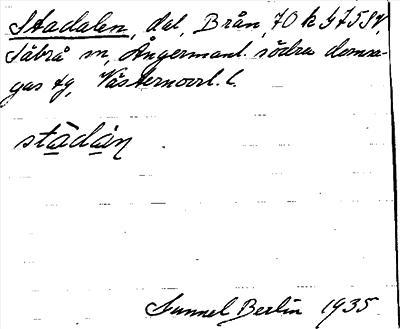 Stadalen, dal, Brån, 70 k 5758v,
Säbrå sn, Ångermanl. södra domsa-
gas tg, Västernorrl. l.
stadan
Gunnel Berlin 1935